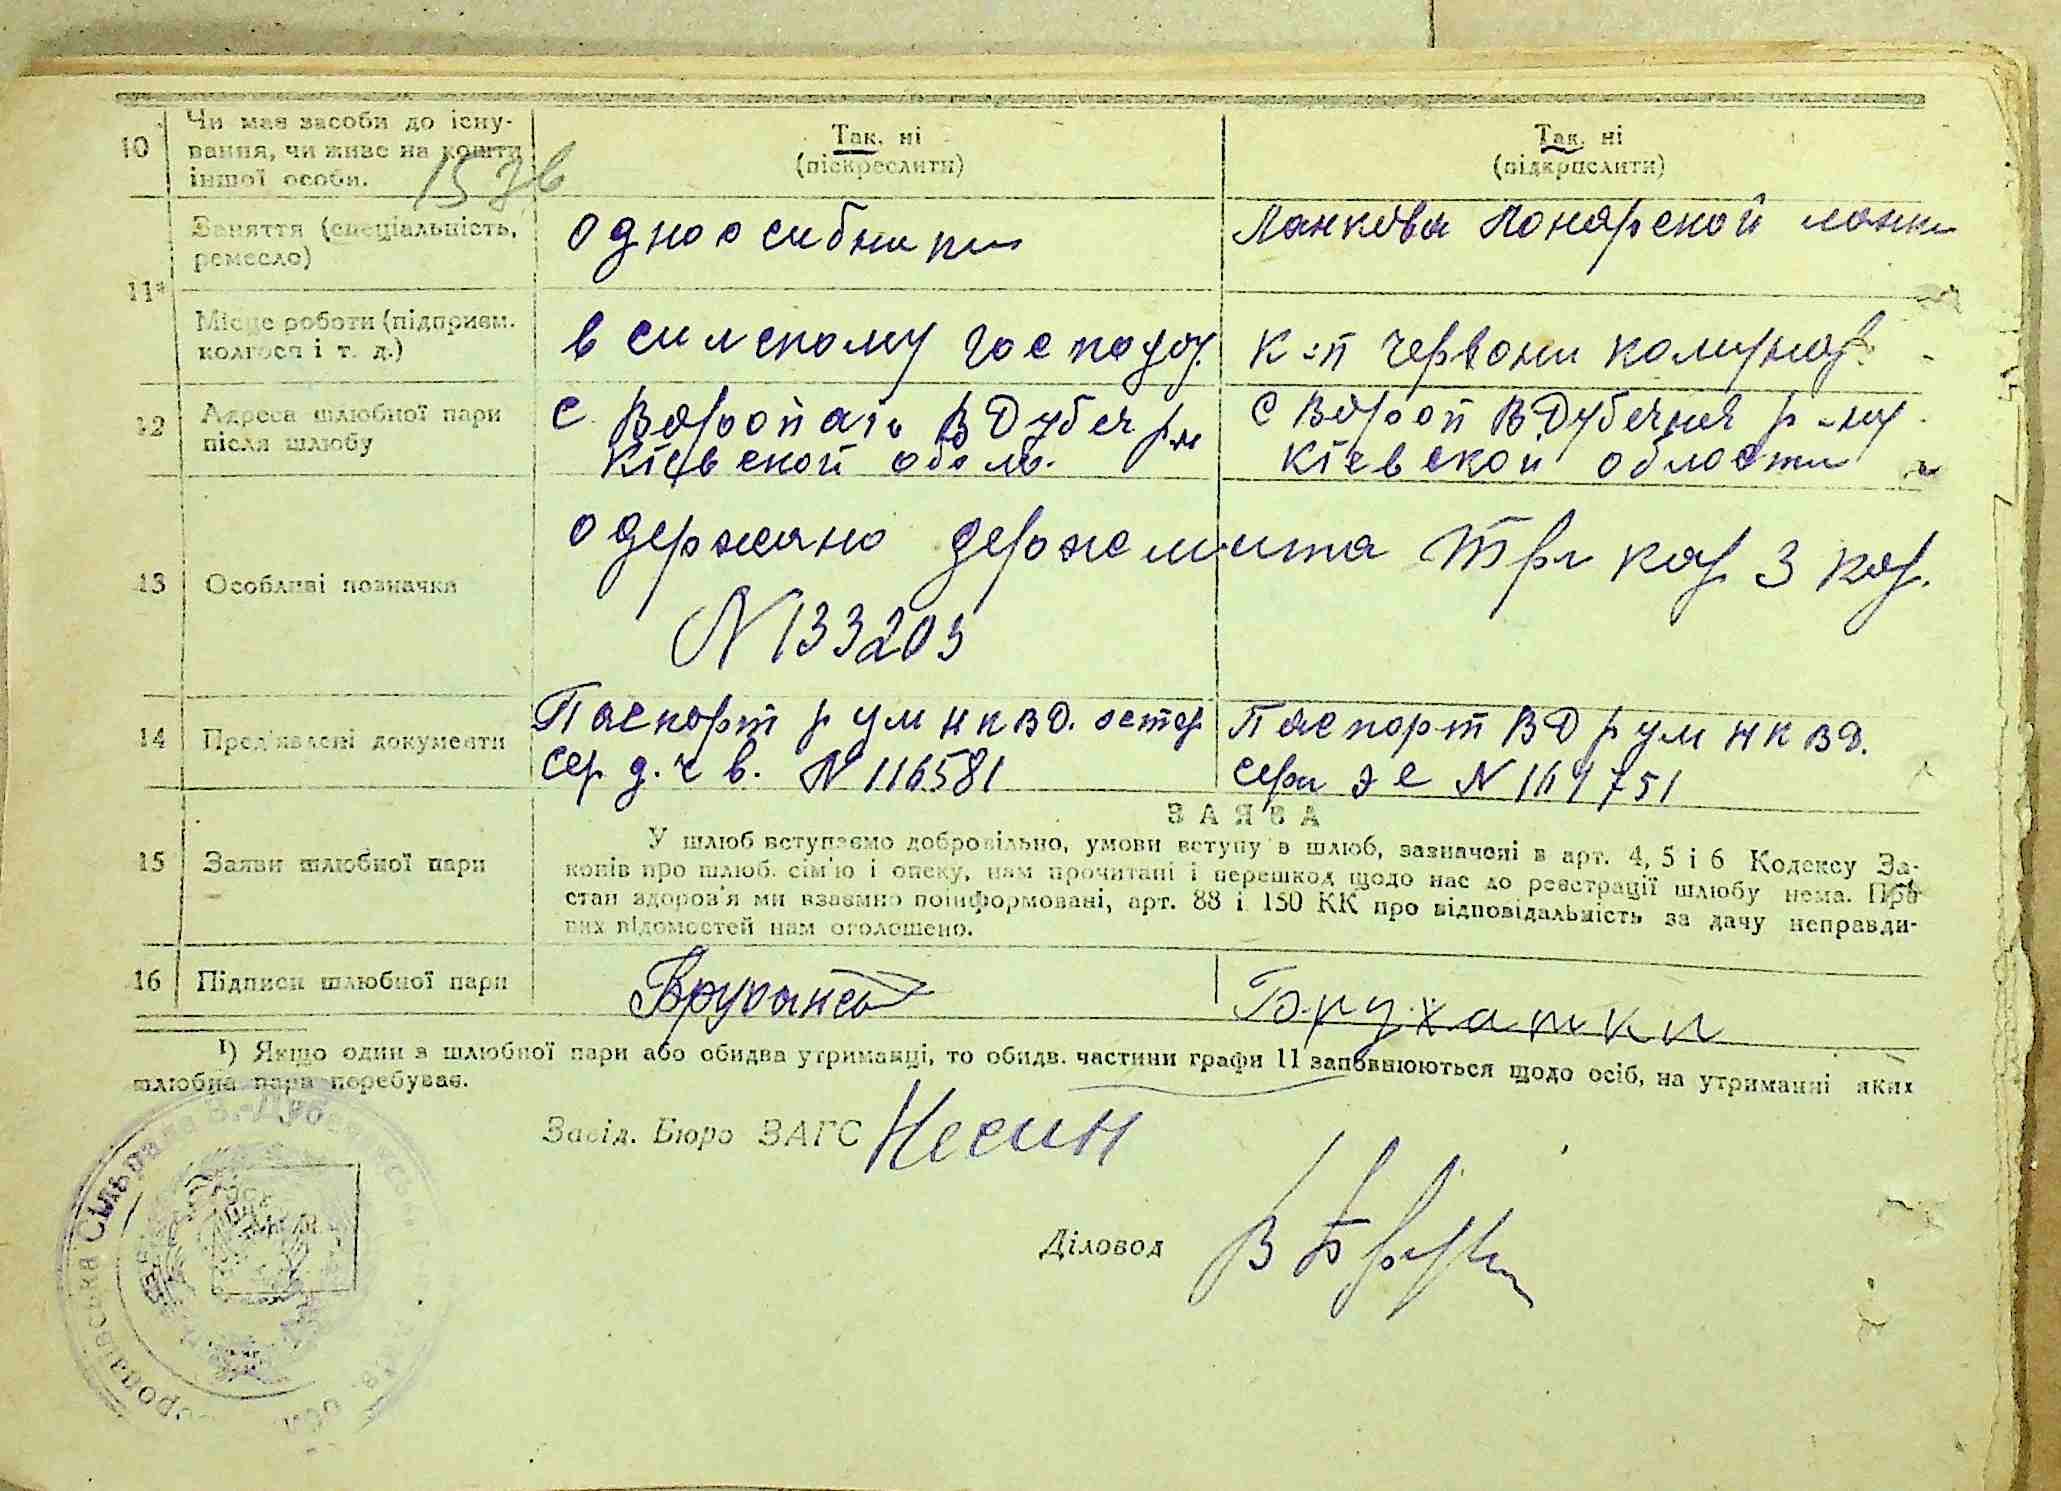 10 Чи має засоби до існу-
вання, чи живе на кошти
іншої особи.
Так, ні
(підкреслити)
Так, ні
(підкрпслити)
Заняття (спеціальність,
ремесло)
одноосибник
Ланкова ланки
11
Місце роботи (підприєм.
колгосп і т. д.)
в силскому господар.
к-п червони комунар.
12 Адреса шлюбної пари
після шлюбу
с Воропаів ВДубеч р-н
Кіевской обл.
с Вороп ВДубечня р-ну
Кіевской области
13 Особливі позначки
одержано держмита три кар 3 кар.
N 133203
14 Пред'явлені документи
Паспорт р у м НКВД. остер
сер д. ч в. N 116581
Паспорт ВД р у м НКВД.
сери N 751
ЗАЯВА
15 Заяви шлюбної пари
У шлюб вступаємо добровільно, умови вступу в шлюб, зазначені в арт. 4, 5 і 6 Кодексу За-
конів про шлюб, сім'ю і опеку, нам прочитані і перешкод щодо нас до реєстрації шлюбу нема. Про
стан здоров'я ми взаємно поінформовані, арт. 88 і 150 КК про відповідальність за дачу неправди-
вих відомостей нам оголошено.
16 Підписи шлюбної пари
Бруханск
Брухатки
1) Якщо один з шлюбної пари або обидва утриманці, то обидв. частини графи 11 заповнюються щодо осіб, на утриманні яких
шлюбна пара перебуває.
Завід. Бюро ЗАГС Несин
Діловод